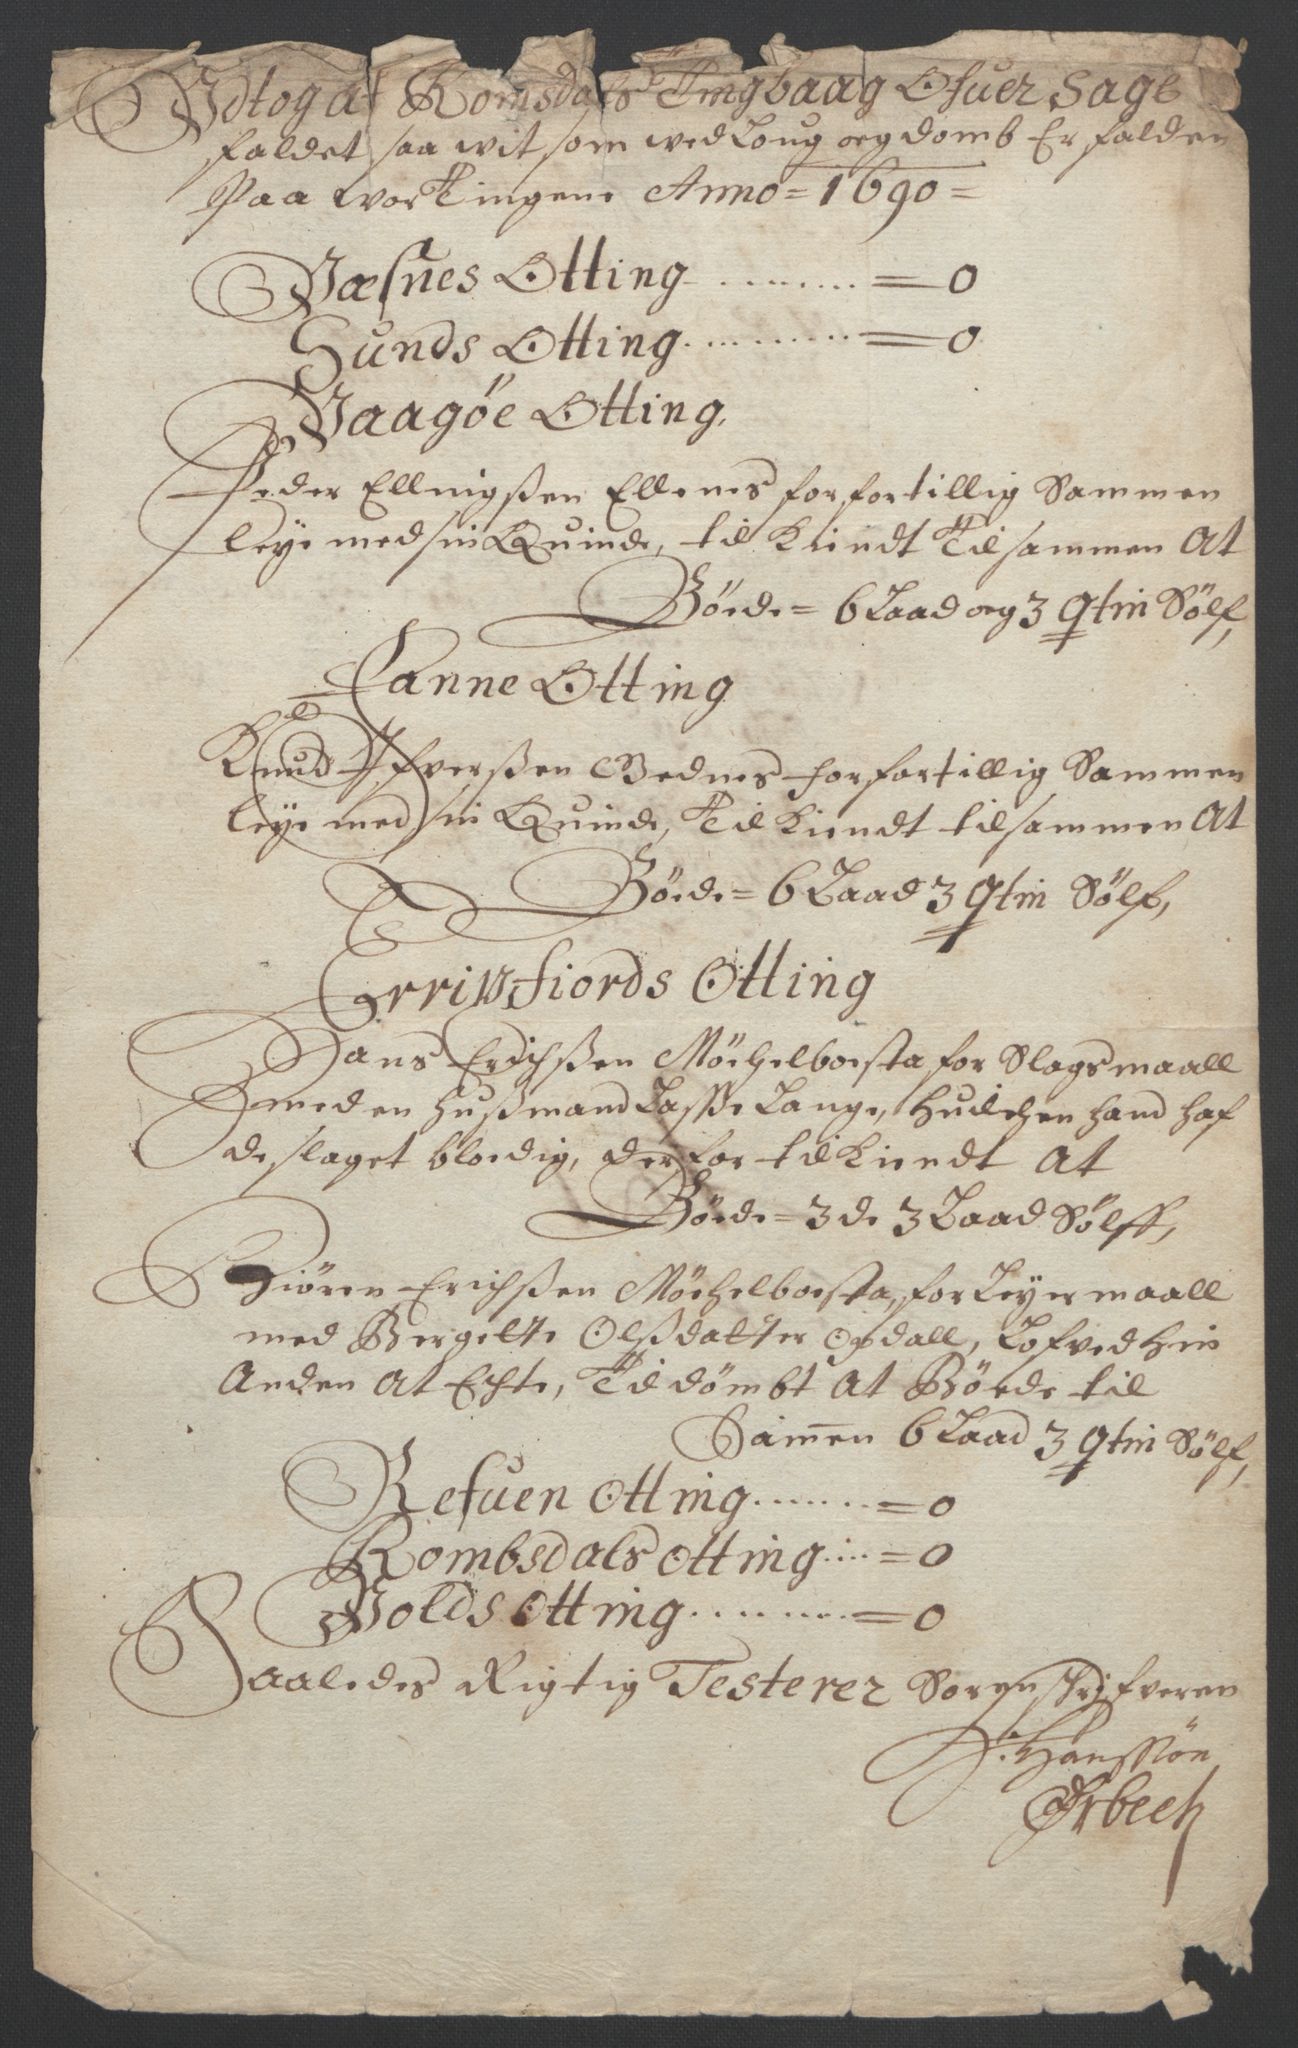 Udtog af Romsdals Tingbaag Ofuer Sage
faldet saa wit som wed Loug oeg domb Er falden
Paa wor Tingene Anno = 1690 =
Wæsnes Otting ......... = 0
Sunds Otting ......... = 0
Waagöe Otting,
Peder Ellingßen Ellenes for fortillig Sammen
leye med sin Quinde, til kiendt Tilsammen At
Böede = 6 Laad oeg 3 qtin Sölf,
Fanne Otting
Knud Ifverßen Gednes for fortillig Sammen
leye med sin Quinde, Til kiendt tilsammen At
Böede = 6 Laad 3 qtin Sölf,
Erridsfiords Otting
Hans Erichßen Möchelboesta for Slagsmaall
med en Hußmand Lasse Lange, Huilchen hand haf
de slaget bloedig, der for til kiendt At
Böede = 3 de 3 Laad Sölff,
Siören Erichßen Möchelboesta, for Leyermaall
med Bergette Olßdatter Opdall, Lofved hin
Anden At Echte, Til dömbt At Böede til
Samen 6 Laad 3 qtin Sölf,
Refuen Otting ....... = 0
Rombsdals Otting .... = 0
Wolds Otting ......... = 0
Saaledes Rigtig Testerer Sorenschrifveren
P: Hanssøn
Ørbech